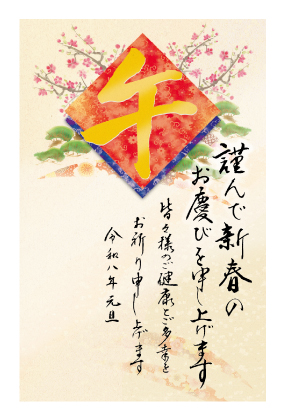 午
謹んで新春の
お慶びを申し上げます
皆々様のご健康とご多幸を
お祈り申し上げます
令和八年元旦